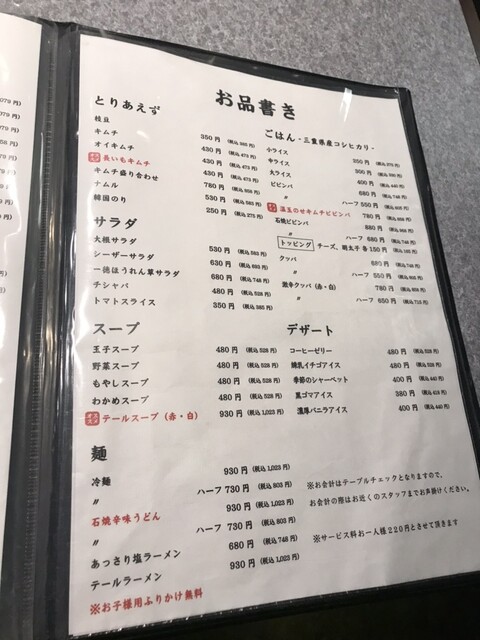 お品書き
とりあえず
枝豆 350円 (税込 385 円)
キムチ 430円 (税込 473 円)
オイキムチ 430円 (税込 473 円)
長いもキムチ 430円 (税込 473 円)
キムチ盛り合わせ 780円 (税込 858 円)
ナムル 530円 (税込 583 円)
韓国のり 250円 (税込 275 円)
サラダ
大根サラダ 530円 (税込 583 円)
シーザーサラダ 630円 (税込 693 円)
一徳ほうれん草サラダ 680円 (税込 748 円)
チシャバ 480円 (税込 528 円)
トマトスライス 350円 (税込 385 円)
スープ
玉子スープ 480円 (税込 528 円)
野菜スープ 480円 (税込 528 円)
もやしスープ 480円 (税込 528 円)
わかめスープ 480円 (税込 528 円)
テールスープ（赤・白） 930円 (税込 1,023 円)
麺
冷麺 930円 (税込 1,023 円)
〃 ハーフ 730円 (税込 803 円)
石焼辛味うどん 930円 (税込 1,023 円)
〃 ハーフ 730円 (税込 803 円)
あっさり塩ラーメン 680円 (税込 748 円)
テールラーメン 930円 (税込 1,023 円)
※お子様用ふりかけ無料
ごはん - 三重県産コシヒカリ -
小ライス 250円 (税込 275 円)
中ライス 300円 (税込 330 円)
大ライス 400円 (税込 440 円)
ビビンバ 680円
〃 ハーフ 550円 (税込 605 円)
温玉のせキムチビビンバ 780円 (税込 858 円)
石焼ビビンバ 880円 (税込 968 円)
〃 ハーフ 680円 (税込 748 円)
トッピング チーズ、明太子 各150円 (税込 165 円)
クッパ 680円 (税込 748 円)
〃 ハーフ 550円 (税込 605 円)
激辛クッパ（赤・白） 780円 (税込 858 円)
〃 ハーフ 650円 (税込 715 円)
デザート
コーヒーゼリー 480円 (税込 528 円)
練乳イチゴアイス 480円 (税込 528 円)
季節のシャーベット 400円 (税込 440 円)
黒ゴマアイス 380円 (税込 418 円)
濃厚バニラアイス 400円 (税込 440 円)
※お会計はテーブルチェックとなりますので、
お会計の際はお近くのスタッフまでお声掛けください。
※サービス料お一人様220円とさせて頂きます